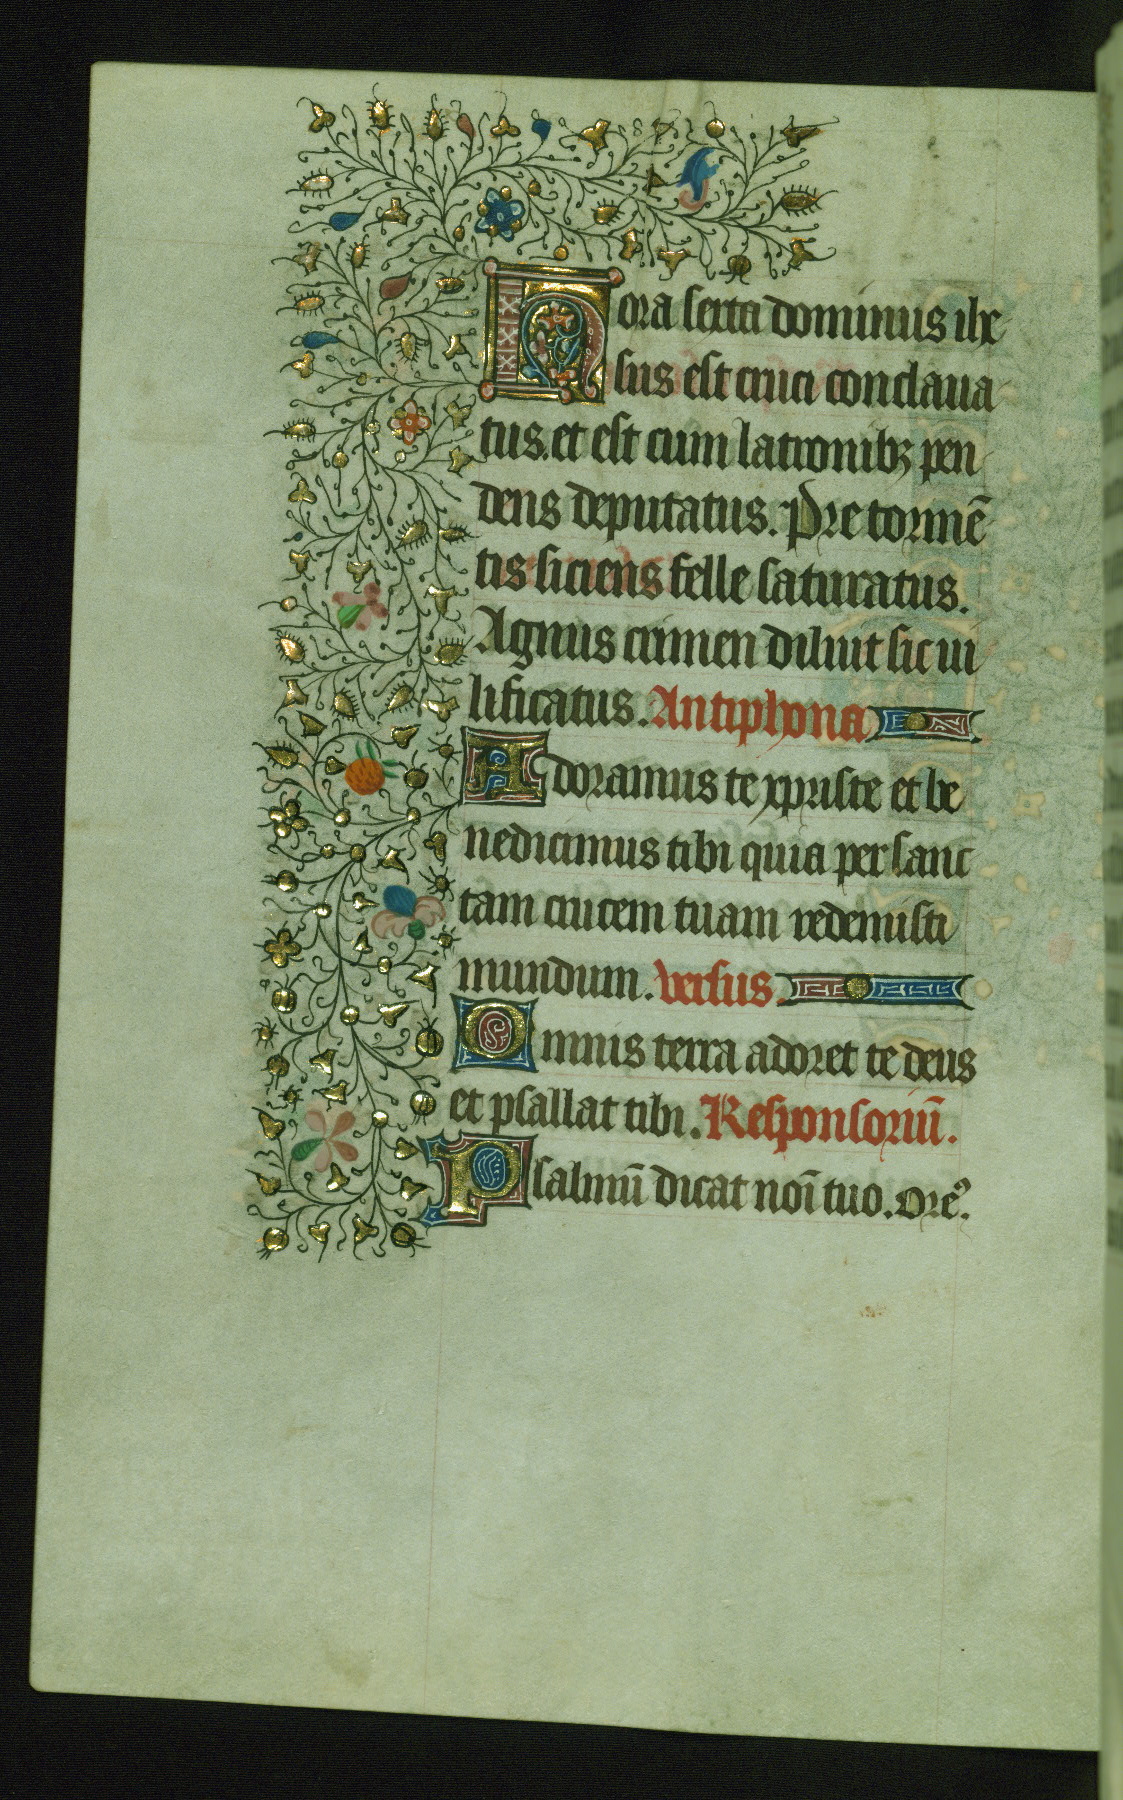 Hora sexta dominus ihe
sus est cruci conclaua
tus. et est cum latronibꝫ pen
dens deputatus. Pre tormē
tis siciens felle saturatus.
Agnus crimen diluit sic ui
lificatus. Antiphona
Adoramus te xpriste et be
nedicimus tibi quia per sanc
tam crucem tuam redemisti
mundum. versus.
Omnis terra adoret te deus
et psallat tibi. Responsoriū.
Psalmū dicat noī tuo. Orē.